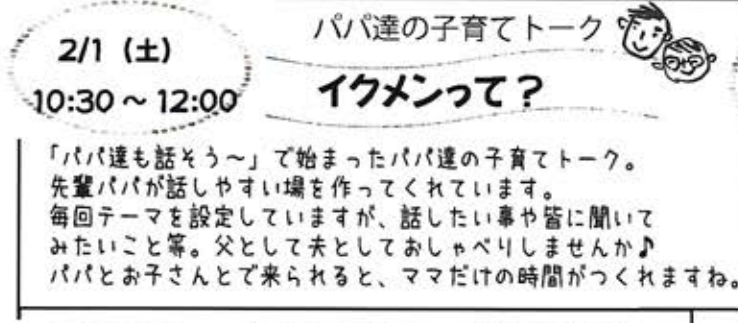 2/1 (土)
10:30 ~ 12:00
パパ達の子育てトーク
イクメンって?
「パパ達も話そう~」で始まったパパ達の子育てトーク。
先輩パパが話しやすい場を作ってくれています。
毎回テーマを設定していますが、話したい事や皆に聞いて
みたいこと等。父として夫としておしゃべりしませんか♪
パパとお子さんとで来られると、ママだけの時間がつくれますね。